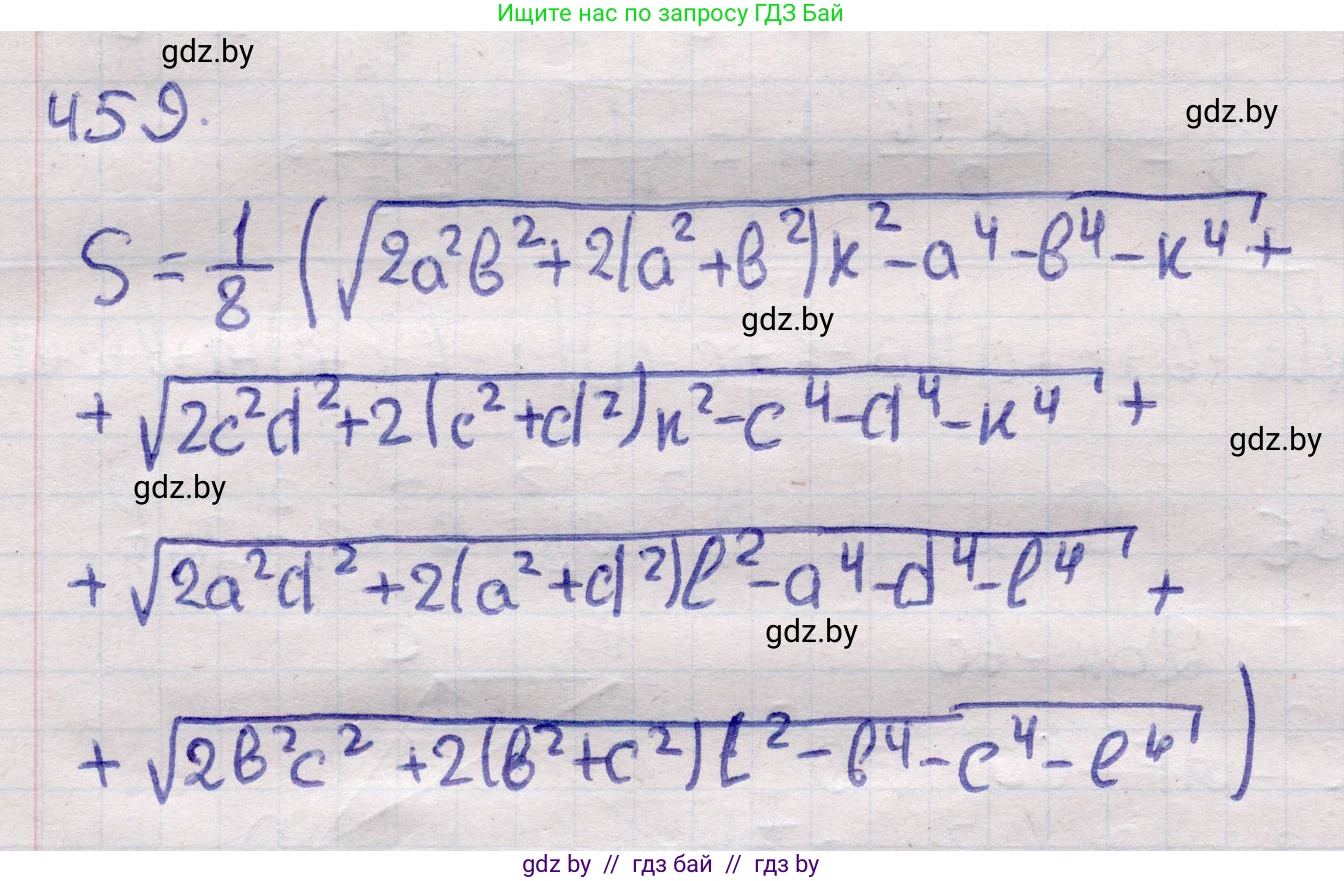 Ищите нас по запросу ГДЗ Бай
gdz.by
459.
gdz.by
S = 1/8 (√(2a²b² + 2(a² + b²)k² - a⁴ - b⁴ - k⁴) +
gdz.by
+ √(2c²d² + 2(c² + d²)k² - c⁴ - d⁴ - k⁴) +
gdz.by
gdz.by
+ √(2a²d² + 2(a² + d²)l² - a⁴ - d⁴ - l⁴) +
gdz.by
+ √(2b²c² + 2(b² + c²)l² - b⁴ - c⁴ - l⁴))
gdz by // гдз бай // гдз by